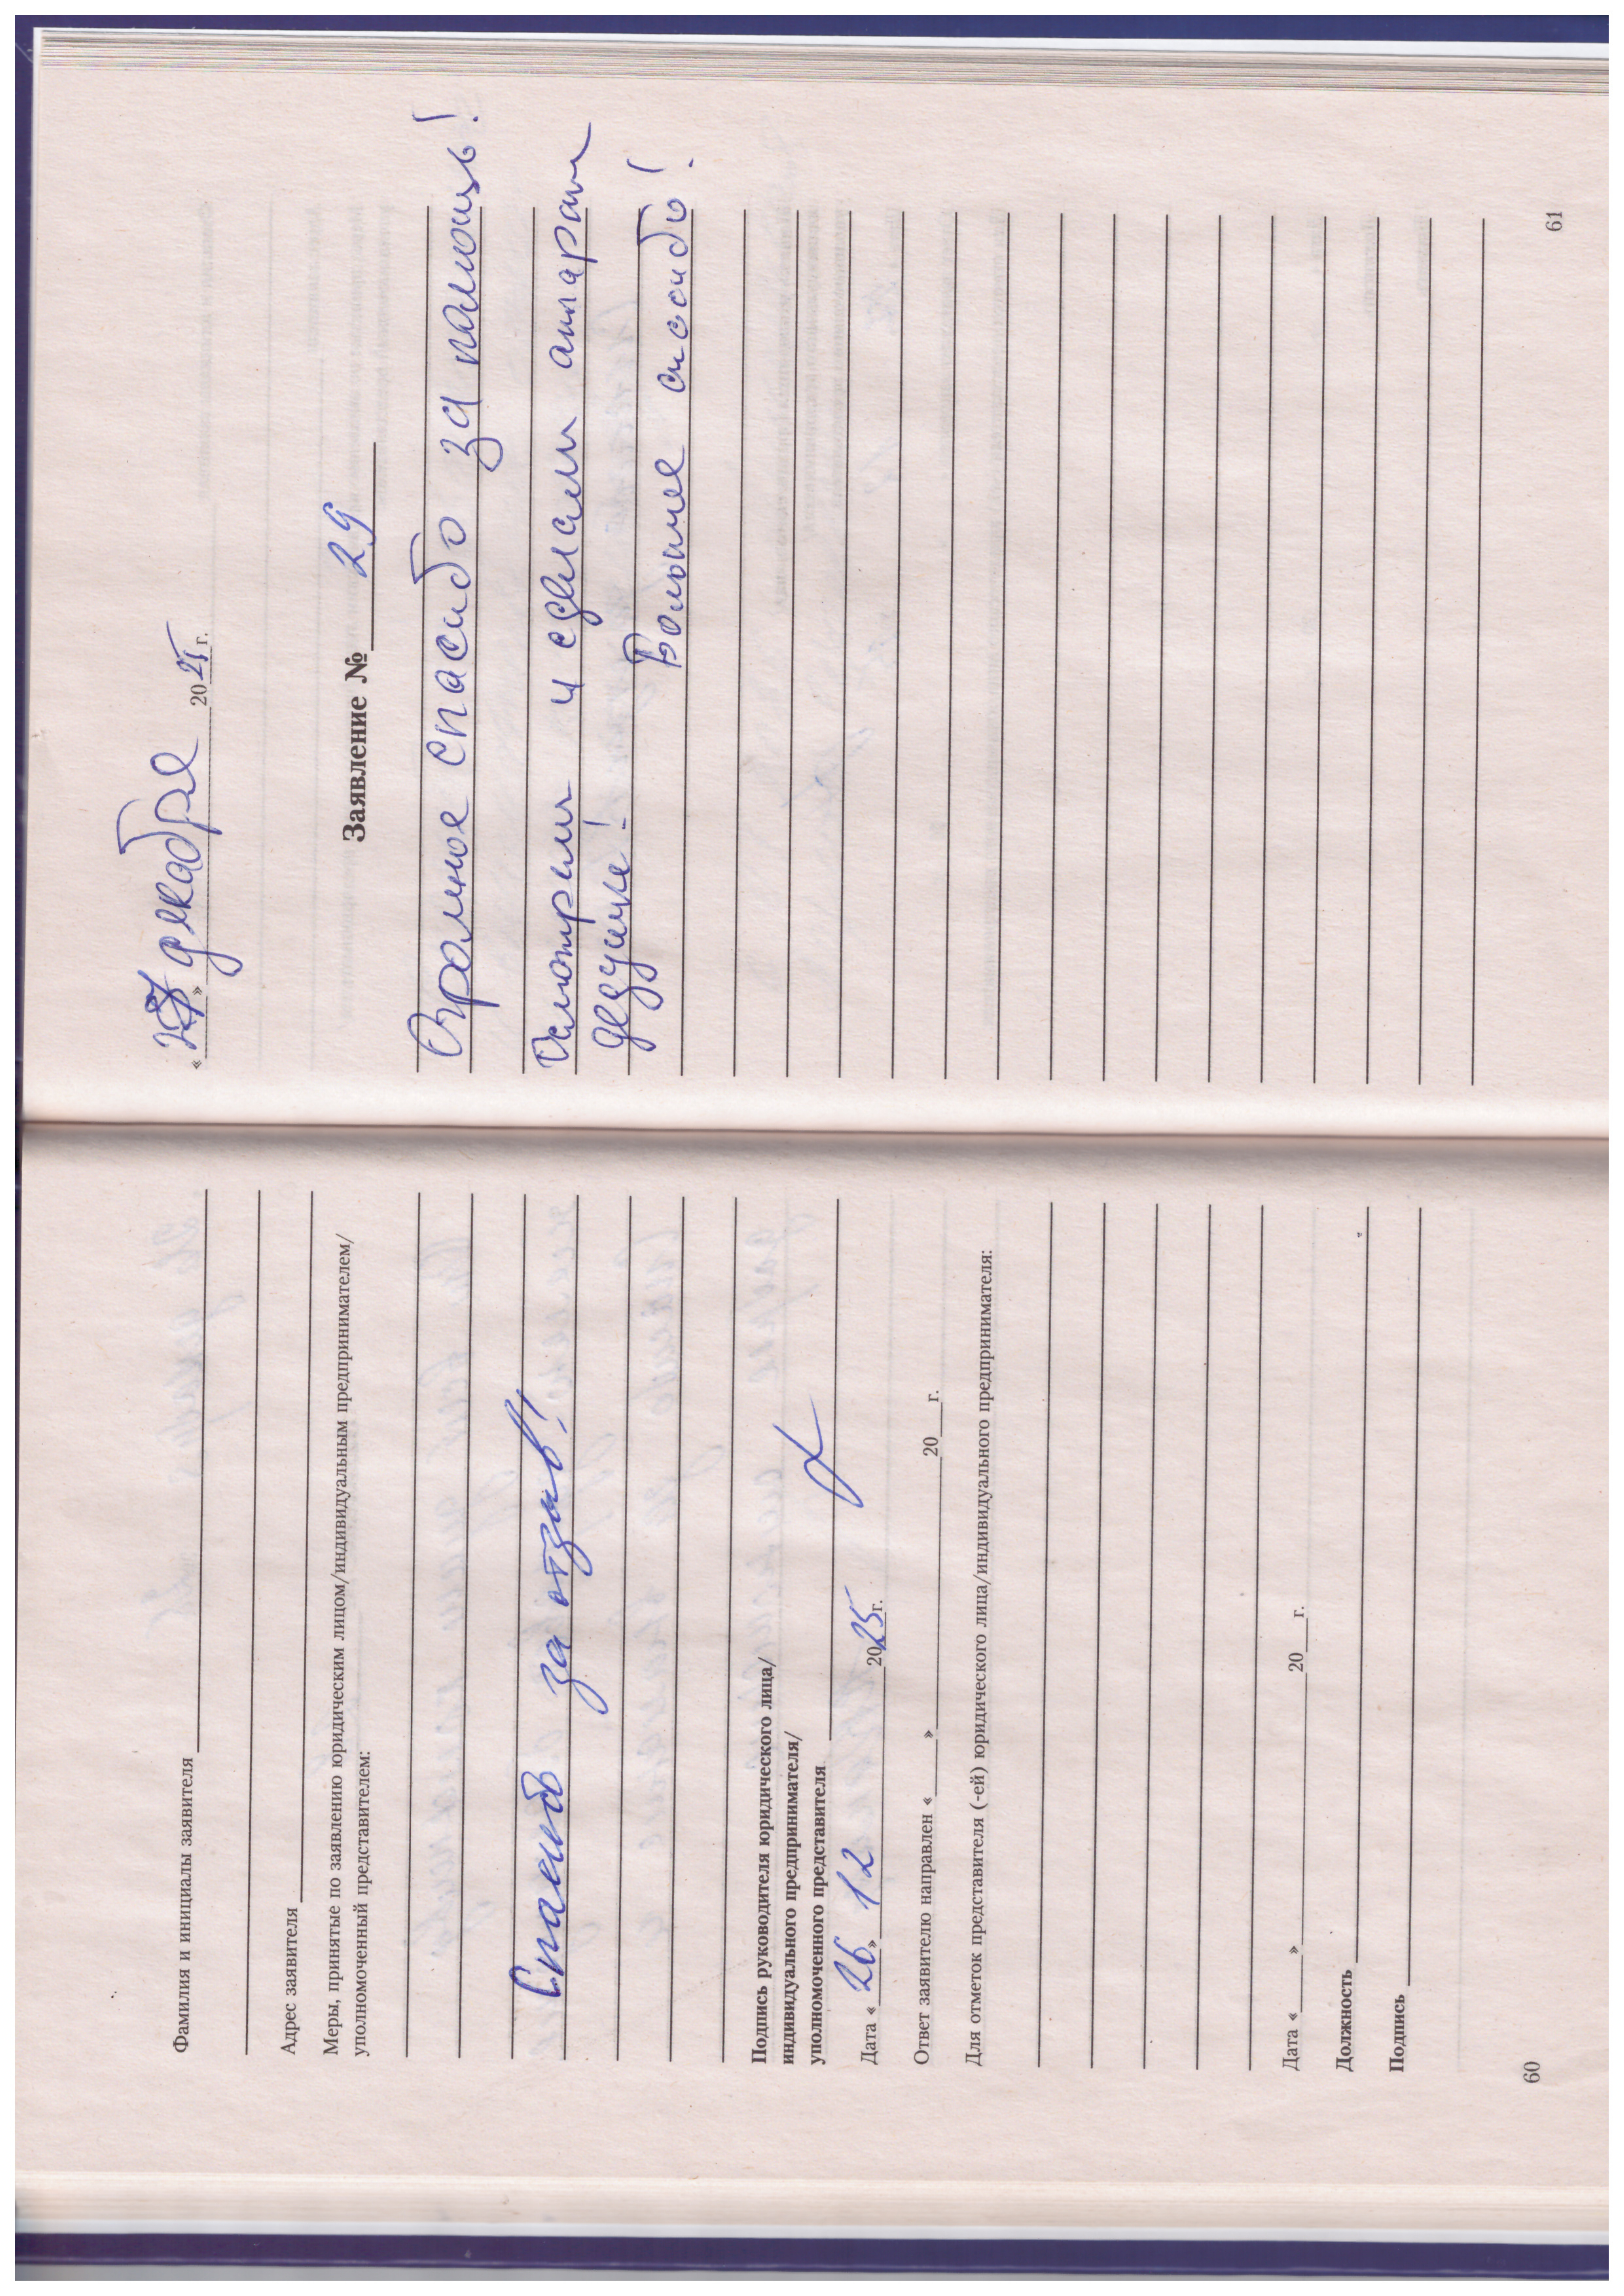 Фамилия и инициалы заявителя
Адрес заявителя
Меры, принятые по заявлению юридическим лицом/индивидуальным предпринимателем/
уполномоченный представителем:
Спасибо за отзыв!
Подпись руководителя юридического лица/
индивидуального предпринимателя/
уполномоченного представителя
Дата « 26 » 12 2025 г.
Ответ заявителю направлен « » 20 г.
Для отметок представителя (-ей) юридического лица/индивидуального предпринимателя:
Дата « » 20 г.
Должность
Подпись
60
« » декабря 2025 г.
Заявление № 29
Огромное спасибо за помощь!
Осмотрели и сделали аппарат
дедушке!
Большое спасибо!
61